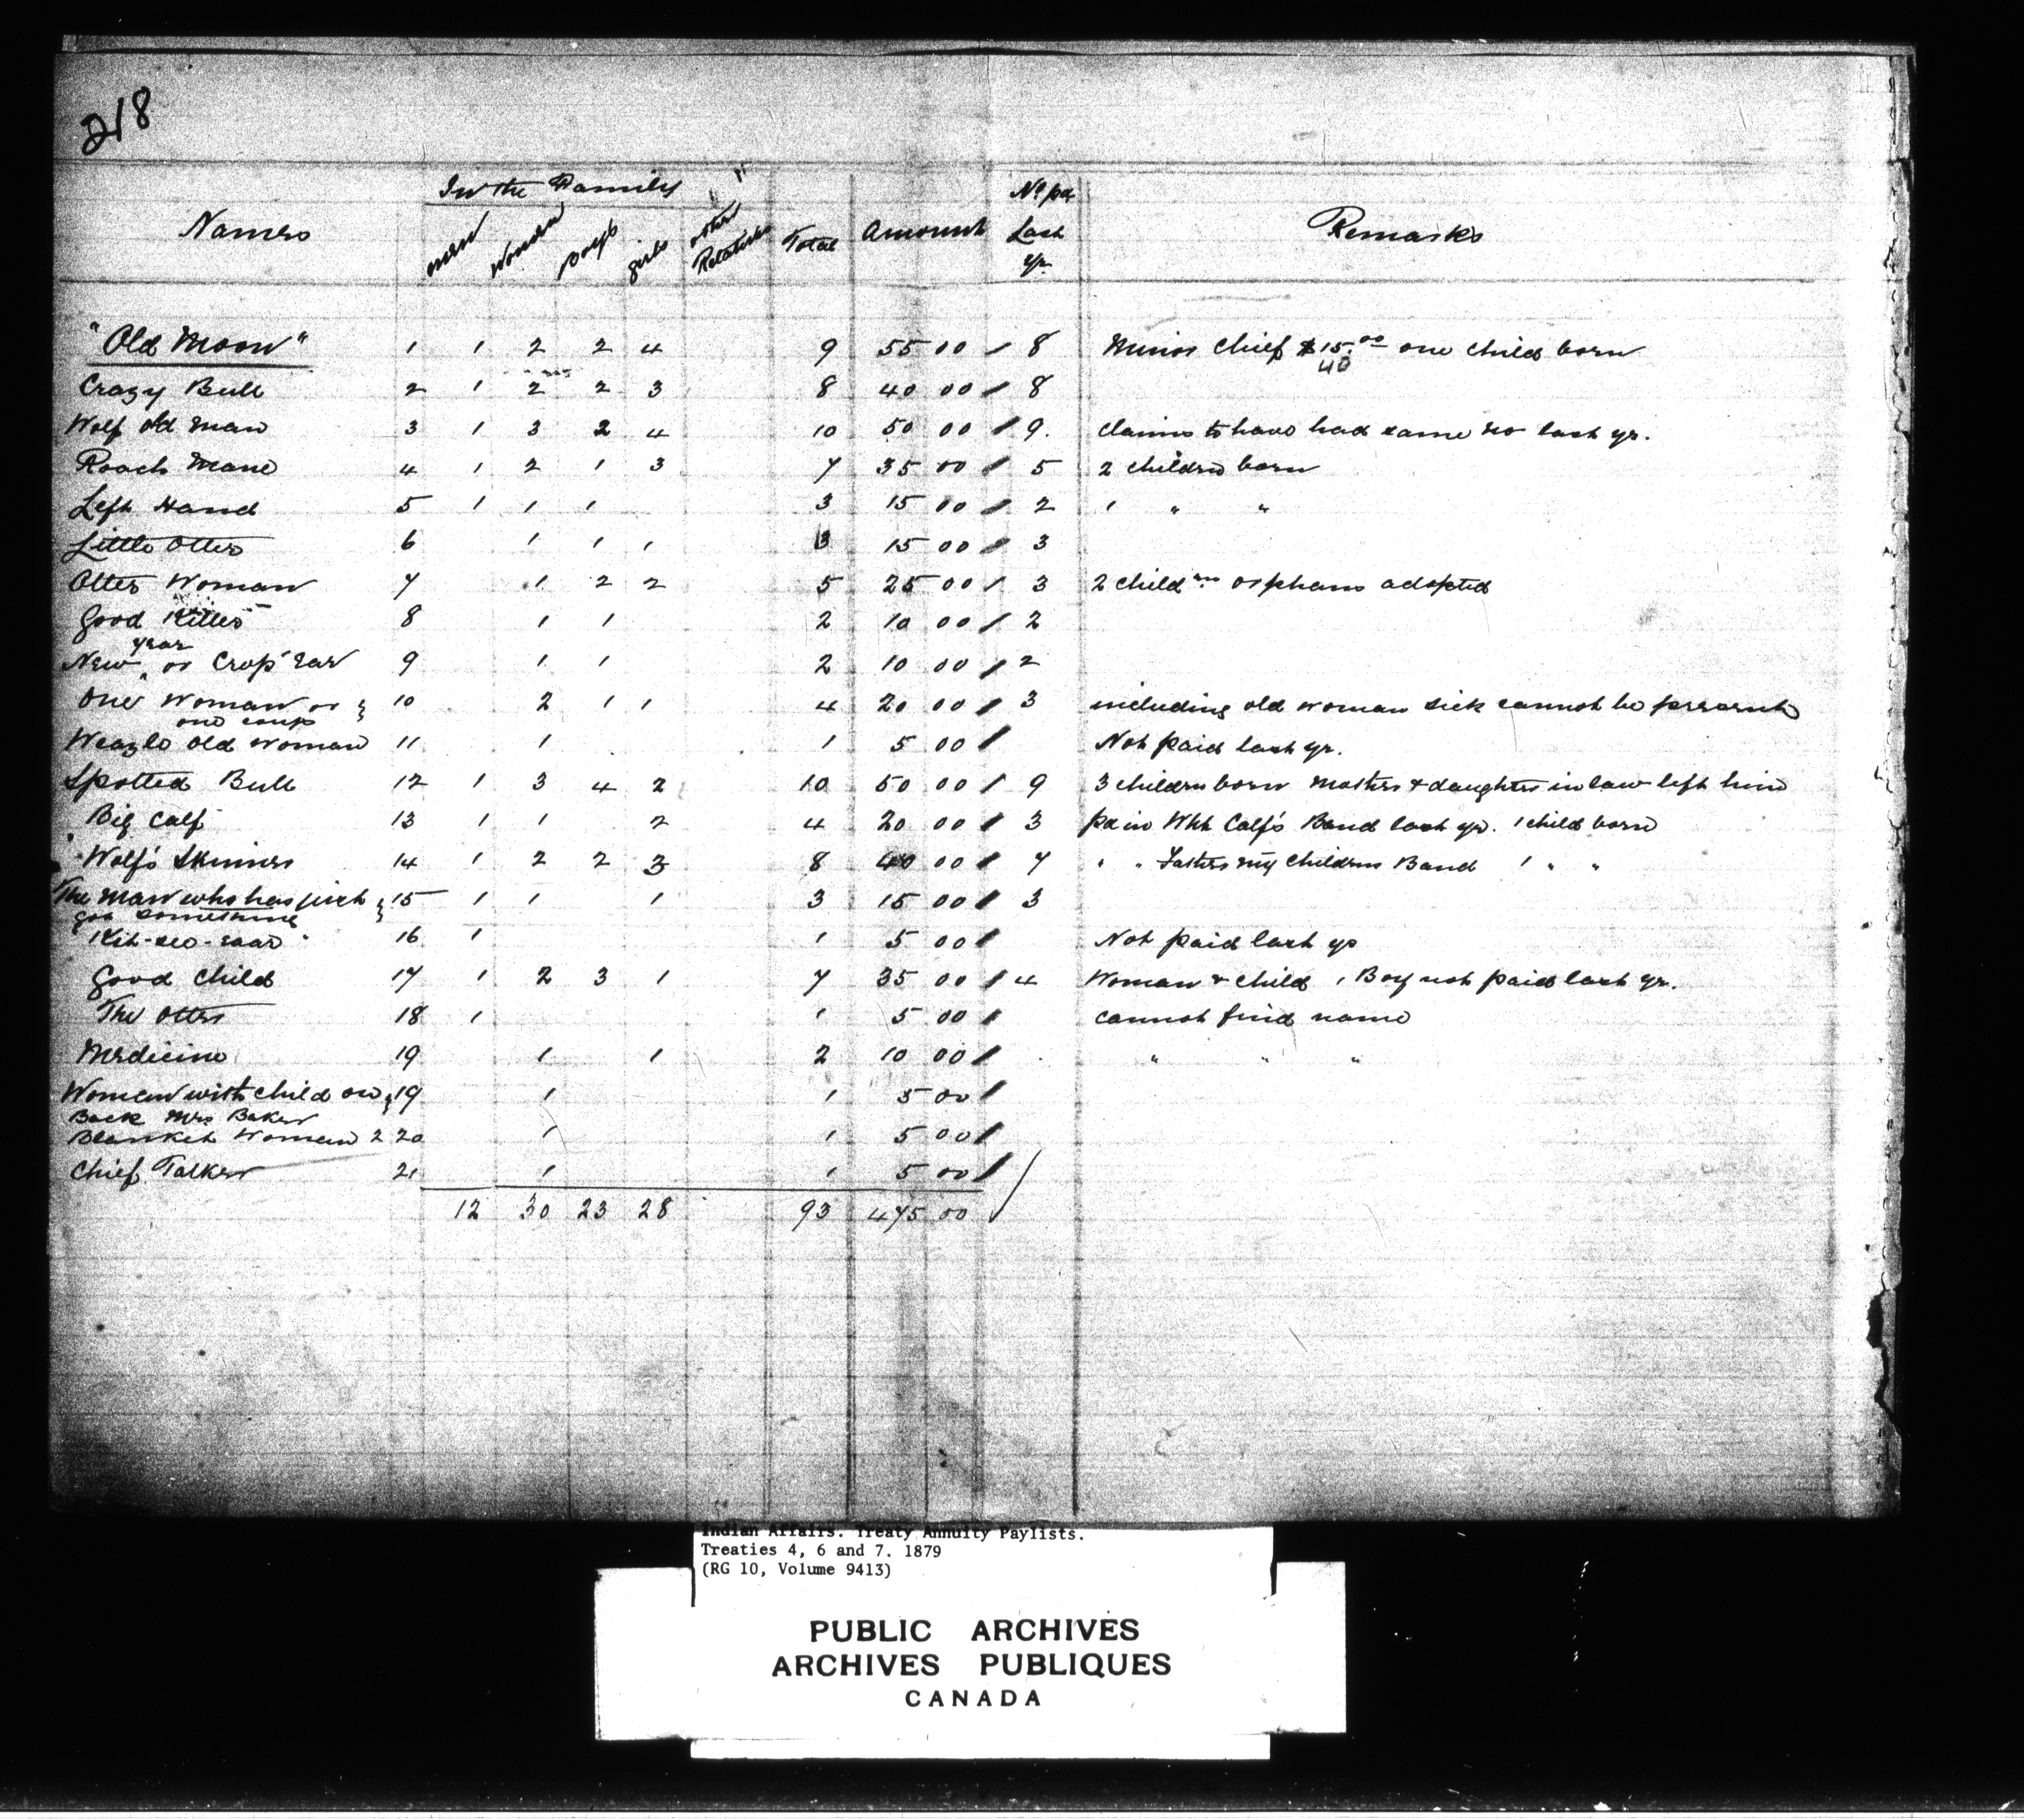 218
In the Family
Names men Women Boys girls other Relatives Total Amount No pd Last yr. Remarks
"Old Moon" 1 1 2 2 4 9 55 00 8 Minor Chief $15.00 one child born
40
Crazy Bull 2 1 2 2 3 8 40 00 8
Wolf old Man 3 1 3 2 4 10 50 00 9. claims to have had same no last yr.
Roach Mane 4 1 2 1 3 7 35 00 5 2 children born
Left Hand 5 1 1 1 3 15 00 2 1 " "
Little Otter 6 1 1 1 3 15 00 3
Otter Woman 7 1 2 2 5 25 00 3 2 childrens orphans adopted
Good Killer 8 1 1 2 10 00 2
year
New or Crop Ear 9 1 1 2 10 00 2
One Woman or 10 2 1 1 4 20 00 3 including old woman sick cannot be present
one coup
Weazle Old Woman 11 1 1 5 00 Not paid last yr.
Spotted Bull 12 1 3 4 2 10 50 00 9 3 children born Mother & daughter in law left him
Big Calf 13 1 1 2 4 20 00 3 pd in Wht Calf's Band last yr. 1 child born
"Wolf's Skinner 14 1 2 2 3 8 40 00 7 " " my Childrens Band 1 " "
The Man who has just 15 1 1 1 3 15 00 3
got something
16 1 1 5 00 Not paid last yr
Good Child 17 1 2 3 1 7 35 00 4 Woman & child 1 Boy not paid last yr.
The Otter 18 1 1 5 00 cannot find name
Medicine 19 1 1 2 10 00 " " "
Woman with child on 19 1 1 5 00
Back Mrs Baker
Blanket Woman 2 20 1 1 5 00
Chief Talker 21 1 1 5 00
12 30 23 28 93 475 00
Indian Affairs. Treaty Annuity Paylists.
Treaties 4, 6 and 7. 1879
(RG 10, Volume 9413)
PUBLIC ARCHIVES
ARCHIVES PUBLIQUES
CANADA